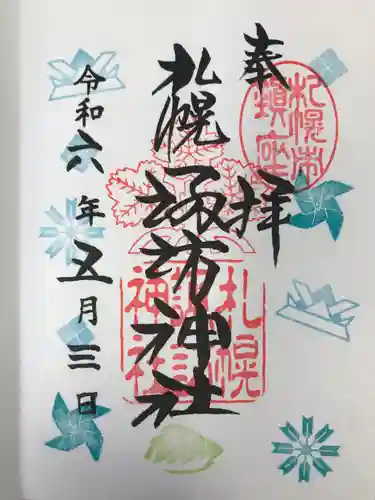 奉拝
札幌市鎮座
札幌諏訪神社
札幌諏訪神社
令和六年五月三日